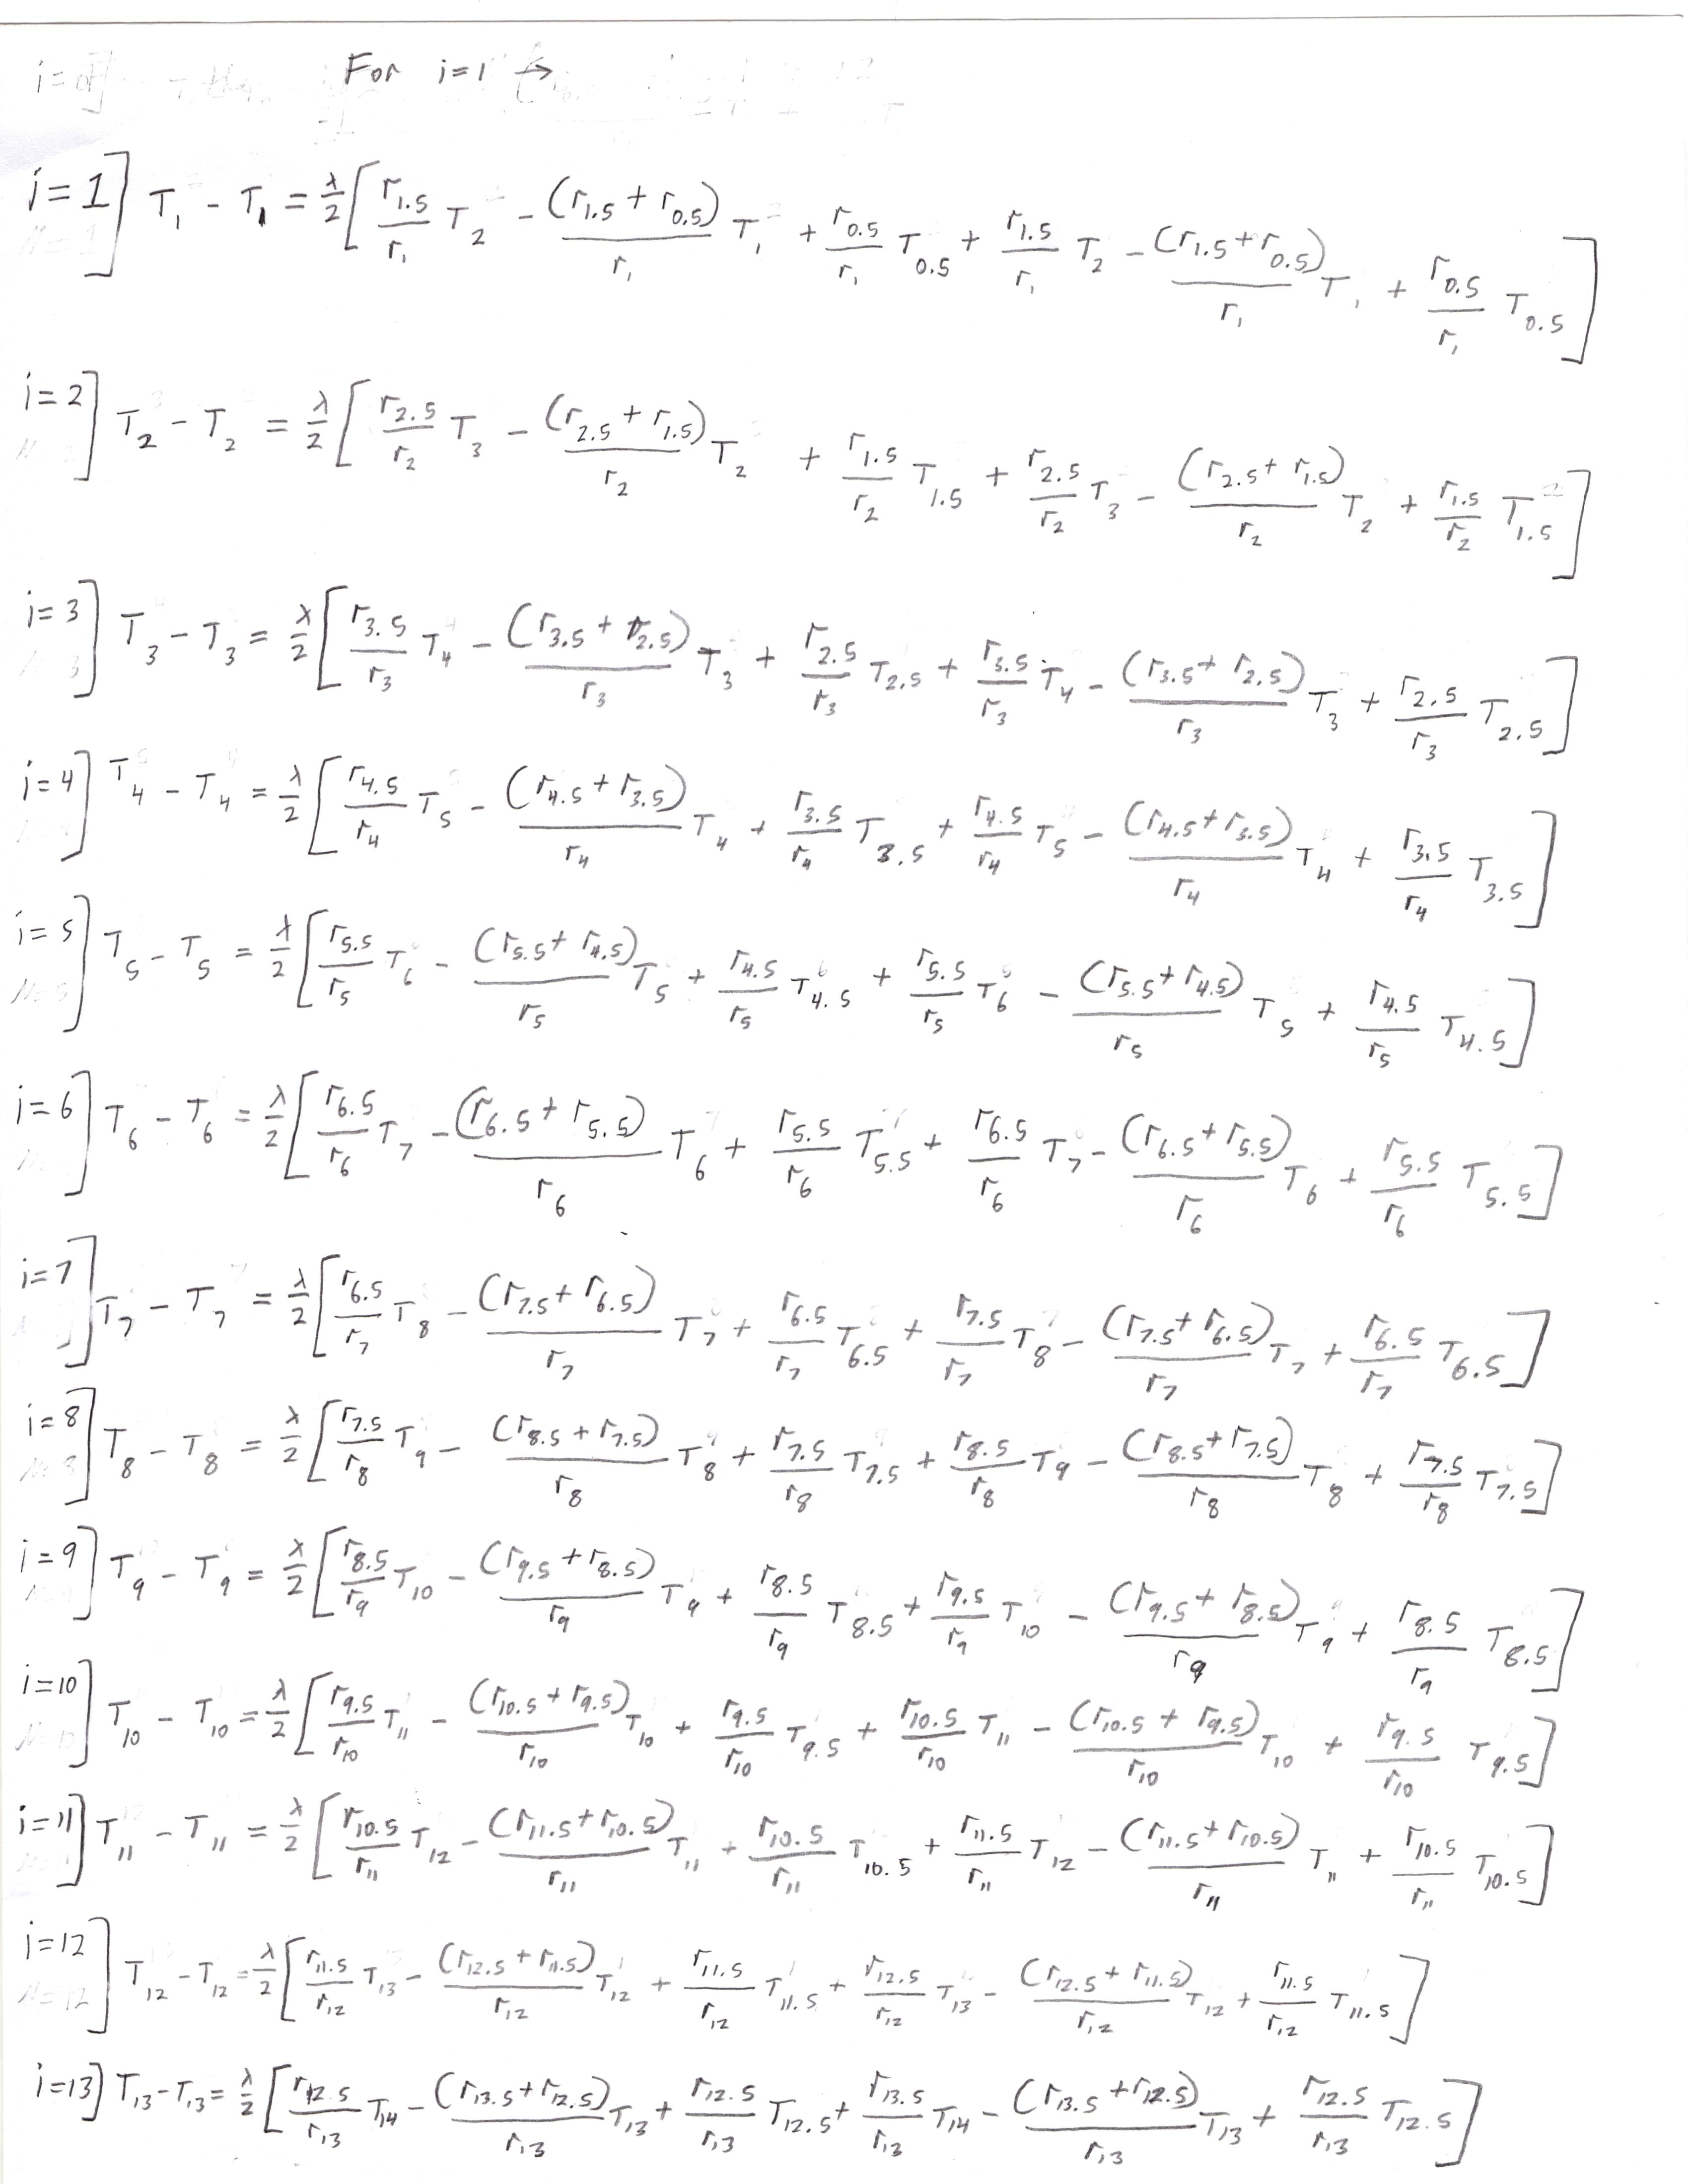 For i=1 →
i=1] T₁ - T₁ = λ/2 [ r₁.₅/r₁ T₂ - (r₁.₅ + r₀.₅)/r₁ T₁ + r₀.₅/r₁ T₀.₅ + r₁.₅/r₁ T₂ - (r₁.₅ + r₀.₅)/r₁ T₁ + r₀.₅/r₁ T₀.₅ ]
i=2] T₂ - T₂ = λ/2 [ r₂.₅/r₂ T₃ - (r₂.₅ + r₁.₅)/r₂ T₂ + r₁.₅/r₂ T₁.₅ + r₂.₅/r₂ T₃ - (r₂.₅ + r₁.₅)/r₂ T₂ + r₁.₅/r₂ T₁.₅ ]
i=3] T₃ - T₃ = λ/2 [ r₃.₅/r₃ T₄ - (r₃.₅ + r₂.₅)/r₃ T₃ + r₂.₅/r₃ T₂.₅ + r₃.₅/r₃ T₄ - (r₃.₅ + r₂.₅)/r₃ T₃ + r₂.₅/r₃ T₂.₅ ]
i=4] T₄ - T₄ = λ/2 [ r₄.₅/r₄ T₅ - (r₄.₅ + r₃.₅)/r₄ T₄ + r₃.₅/r₄ T₃.₅ + r₄.₅/r₄ T₅ - (r₄.₅ + r₃.₅)/r₄ T₄ + r₃.₅/r₄ T₃.₅ ]
i=5] T₅ - T₅ = λ/2 [ r₅.₅/r₅ T₆ - (r₅.₅ + r₄.₅)/r₅ T₅ + r₄.₅/r₅ T₄.₅ + r₅.₅/r₅ T₆ - (r₅.₅ + r₄.₅)/r₅ T₅ + r₄.₅/r₅ T₄.₅ ]
i=6] T₆ - T₆ = λ/2 [ r₆.₅/r₆ T₇ - (r₆.₅ + r₅.₅)/r₆ T₆ + r₅.₅/r₆ T₅.₅ + r₆.₅/r₆ T₇ - (r₆.₅ + r₅.₅)/r₆ T₆ + r₅.₅/r₆ T₅.₅ ]
i=7] T₇ - T₇ = λ/2 [ r₆.₅/r₇ T₈ - (r₇.₅ + r₆.₅)/r₇ T₇ + r₆.₅/r₇ T₆.₅ + r₇.₅/r₇ T₈ - (r₇.₅ + r₆.₅)/r₇ T₇ + r₆.₅/r₇ T₆.₅ ]
i=8] T₈ - T₈ = λ/2 [ r₇.₅/r₈ T₉ - (r₈.₅ + r₇.₅)/r₈ T₈ + r₇.₅/r₈ T₇.₅ + r₈.₅/r₈ T₉ - (r₈.₅ + r₇.₅)/r₈ T₈ + r₇.₅/r₈ T₇.₅ ]
i=9] T₉ - T₉ = λ/2 [ r₈.₅/r₉ T₁₀ - (r₉.₅ + r₈.₅)/r₉ T₉ + r₈.₅/r₉ T₈.₅ + r₉.₅/r₉ T₁₀ - (r₉.₅ + r₈.₅)/r₉ T₉ + r₈.₅/r₉ T₈.₅ ]
i=10] T₁₀ - T₁₀ = λ/2 [ r₉.₅/r₁₀ T₁₁ - (r₁₀.₅ + r₉.₅)/r₁₀ T₁₀ + r₉.₅/r₁₀ T₉.₅ + r₁₀.₅/r₁₀ T₁₁ - (r₁₀.₅ + r₉.₅)/r₁₀ T₁₀ + r₉.₅/r₁₀ T₉.₅ ]
i=11] T₁₁ - T₁₁ = λ/2 [ r₁₀.₅/r₁₁ T₁₂ - (r₁₁.₅ + r₁₀.₅)/r₁₁ T₁₁ + r₁₀.₅/r₁₁ T₁₀.₅ + r₁₁.₅/r₁₁ T₁₂ - (r₁₁.₅ + r₁₀.₅)/r₁₁ T₁₁ + r₁₀.₅/r₁₁ T₁₀.₅ ]
i=12] T₁₂ - T₁₂ = λ/2 [ r₁₁.₅/r₁₂ T₁₃ - (r₁₂.₅ + r₁₁.₅)/r₁₂ T₁₂ + r₁₁.₅/r₁₂ T₁₁.₅ + r₁₂.₅/r₁₂ T₁₃ - (r₁₂.₅ + r₁₁.₅)/r₁₂ T₁₂ + r₁₁.₅/r₁₂ T₁₁.₅ ]
i=13] T₁₃ - T₁₃ = λ/2 [ r₁₂.₅/r₁₃ T₁₄ - (r₁₃.₅ + r₁₂.₅)/r₁₃ T₁₃ + r₁₂.₅/r₁₃ T₁₂.₅ + r₁₃.₅/r₁₃ T₁₄ - (r₁₃.₅ + r₁₂.₅)/r₁₃ T₁₃ + r₁₂.₅/r₁₃ T₁₂.₅ ]